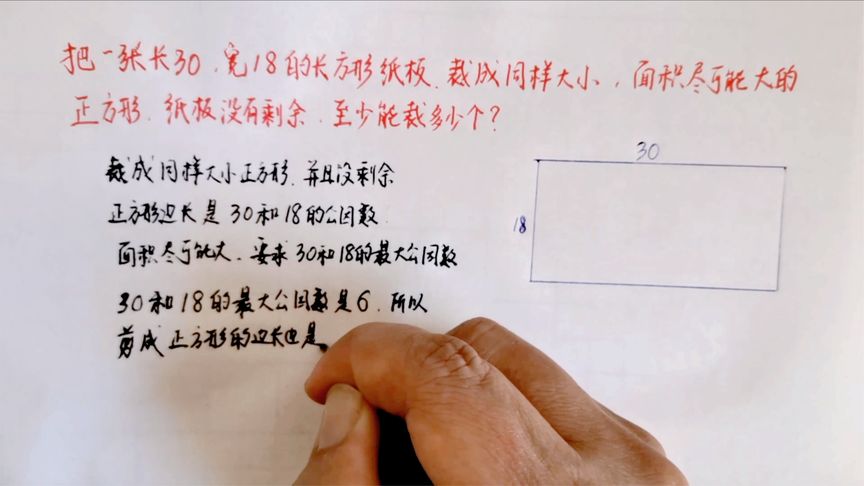 把一张长30,宽18的长方形纸板,裁成同样大小,面积尽可能大的
正方形,纸板没有剩余,至少能裁多少个?
裁成同样大小正方形,并且没剩余
正方形边长是30和18的公因数
面积尽可能大,要求30和18的最大公因数
30和18的最大公因数是6,所以
剪成正方形的边长也是
30
18